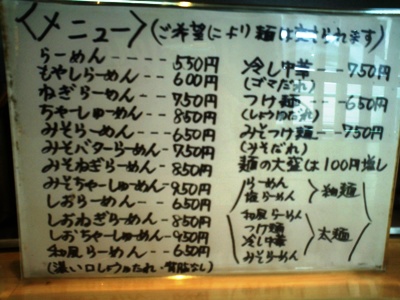 〈メニュー〉(ご希望により麺は変えられます)
らーめん----550円
もやしらーめん--600円
ねぎらーめん--750円
ちゃーしゅーめん--850円
みそらーめん---650円
みそバターらーめん--750円
みそねぎらーめん--850円
みそちゃーしゅーめん--950円
しおらーめん---650円
しおねぎらーめん--850円
しおちゃーしゅーめん--950円
和風らーめん---650円
(濃い口しょうゆだれ・背脂なし)
冷し中華---750円
(ゴマだれ)
つけ麺----650円
(しょうゆだれ)
みそつけ麺---750円
(みそだれ)
麺の大盛は100円増し
らーめん
塩らーめん 〉細麺
和風らーめん
つけ麺
冷し中華 〉太麺
みそらーめん